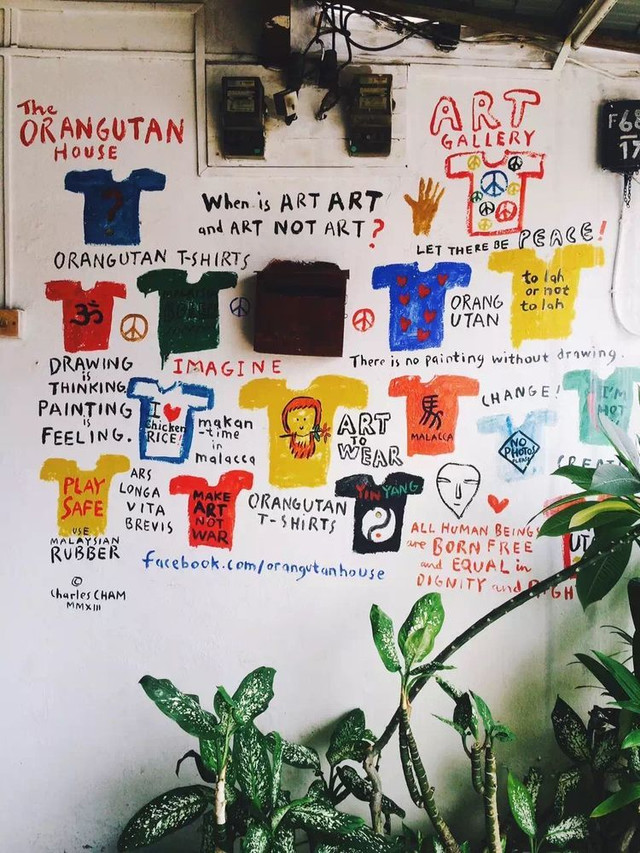 The
ORANGUTAN
HOUSE
ART
GALLERY
F68
17
?
When is ART ART
and ART NOT ART?
LET THERE BE PEACE!
ORANGUTAN T-SHIRTS
ॐ
ORANG
UTAN
to lah
or not
to lah
IMAGINE
There is no painting without drawing.
DRAWING
is
THINKING
PAINTING
is
FEELING.
I ♥
Chicken
RICE!
makan
-time
in
malacca
ART
TO
WEAR
馬
MALACCA
CHANGE!
NO
PHOTOS
PLEASE
I'M
NOT
PLAY
SAFE
USE
MALAYSIAN
RUBBER
ARS
LONGA
VITA
BREVIS
MAKE
ART
NOT
WAR
ORANGUTAN
T-SHIRTS
YIN YANG
ALL HUMAN BEINGS
are BORN FREE
and EQUAL in
DIGNITY and
facebook.com/orangutanhouse
©
Charles CHAM
MMXIII